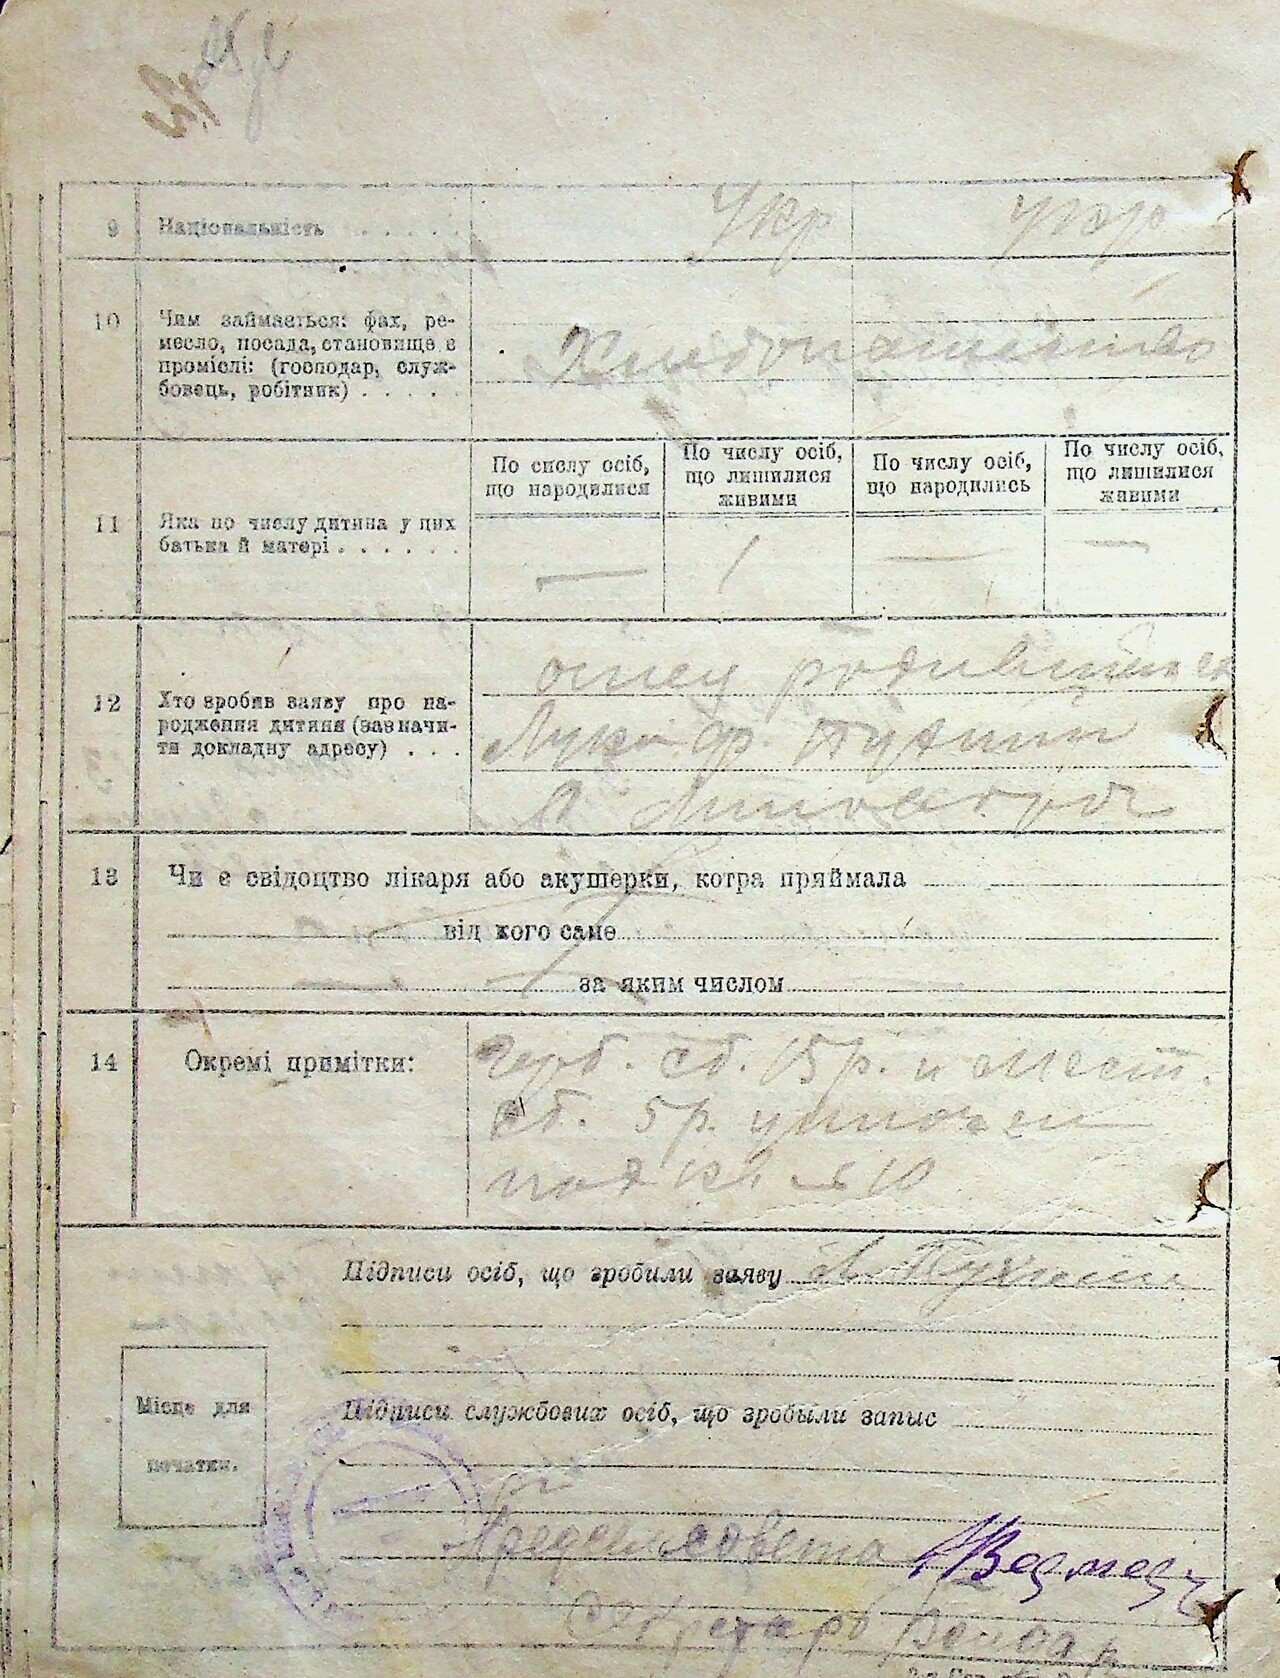 9 Національність . . . . . Укр Укр
10 Чим займається: фах, ре-
месло, посада, становище в
промислі: (господар, служ-
бовець, робітник) . . . . .
Хлебопашество
11 Яка по числу дитина у цих
батька й матері . . . . . .
По числу осіб,
що народилися
По числу осіб,
що лишилися
живими
По числу осіб,
що народились
По числу осіб,
що лишилися
живими
— 1 — —
12 Хто зробив заяву про на-
родження дитини (зазначи-
ти докладну адресу) . . .
отец родившейся
Лука
13 Чи є свідоцтво лікаря або акушерки, котра приймала
від кого саме
за яким числом
14 Окремі примітки:
Герб. сб. 15 р. и Мест.
сб. 5 р. уплочен
под кв №10
Підписи осіб, що зробили заяву
Місце для
печатки.
Підписи службових осіб, що зробыли запыс
Председ совета
Секретарь